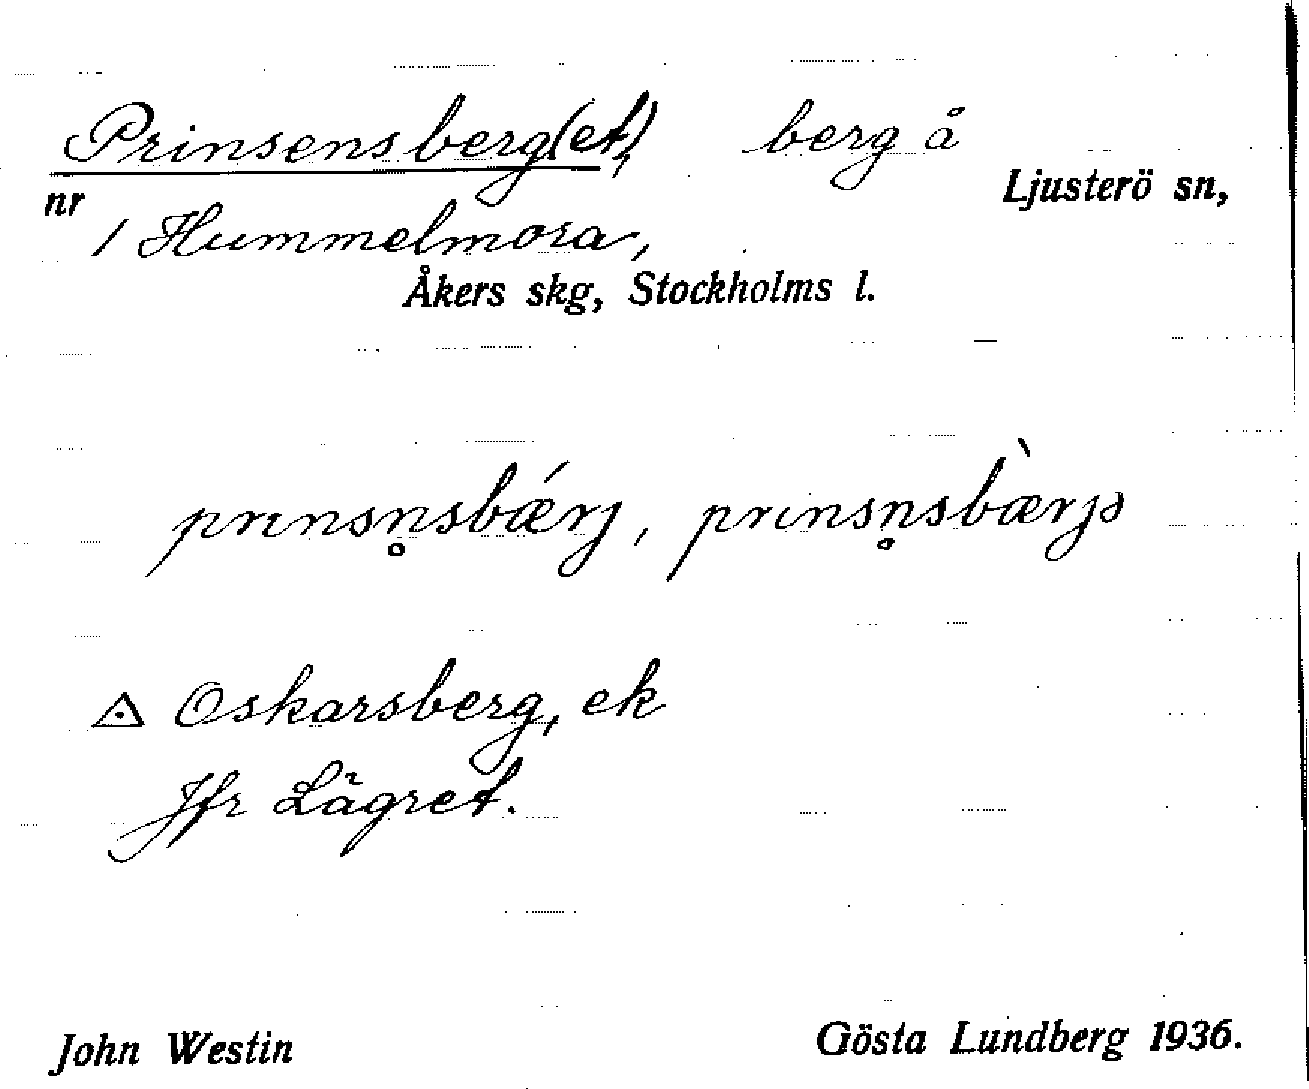 Prinsensberg(et), berg å
Ljusterö sn,
nr 1 Hummelmora,
Åkers skg, Stockholms l.
prinsn̥sbǽrj, prinsn̥sbæ̀rjə
◬ Oskarsberg, ek
Jfr Lägret.
John Westin Gösta Lundberg 1936.